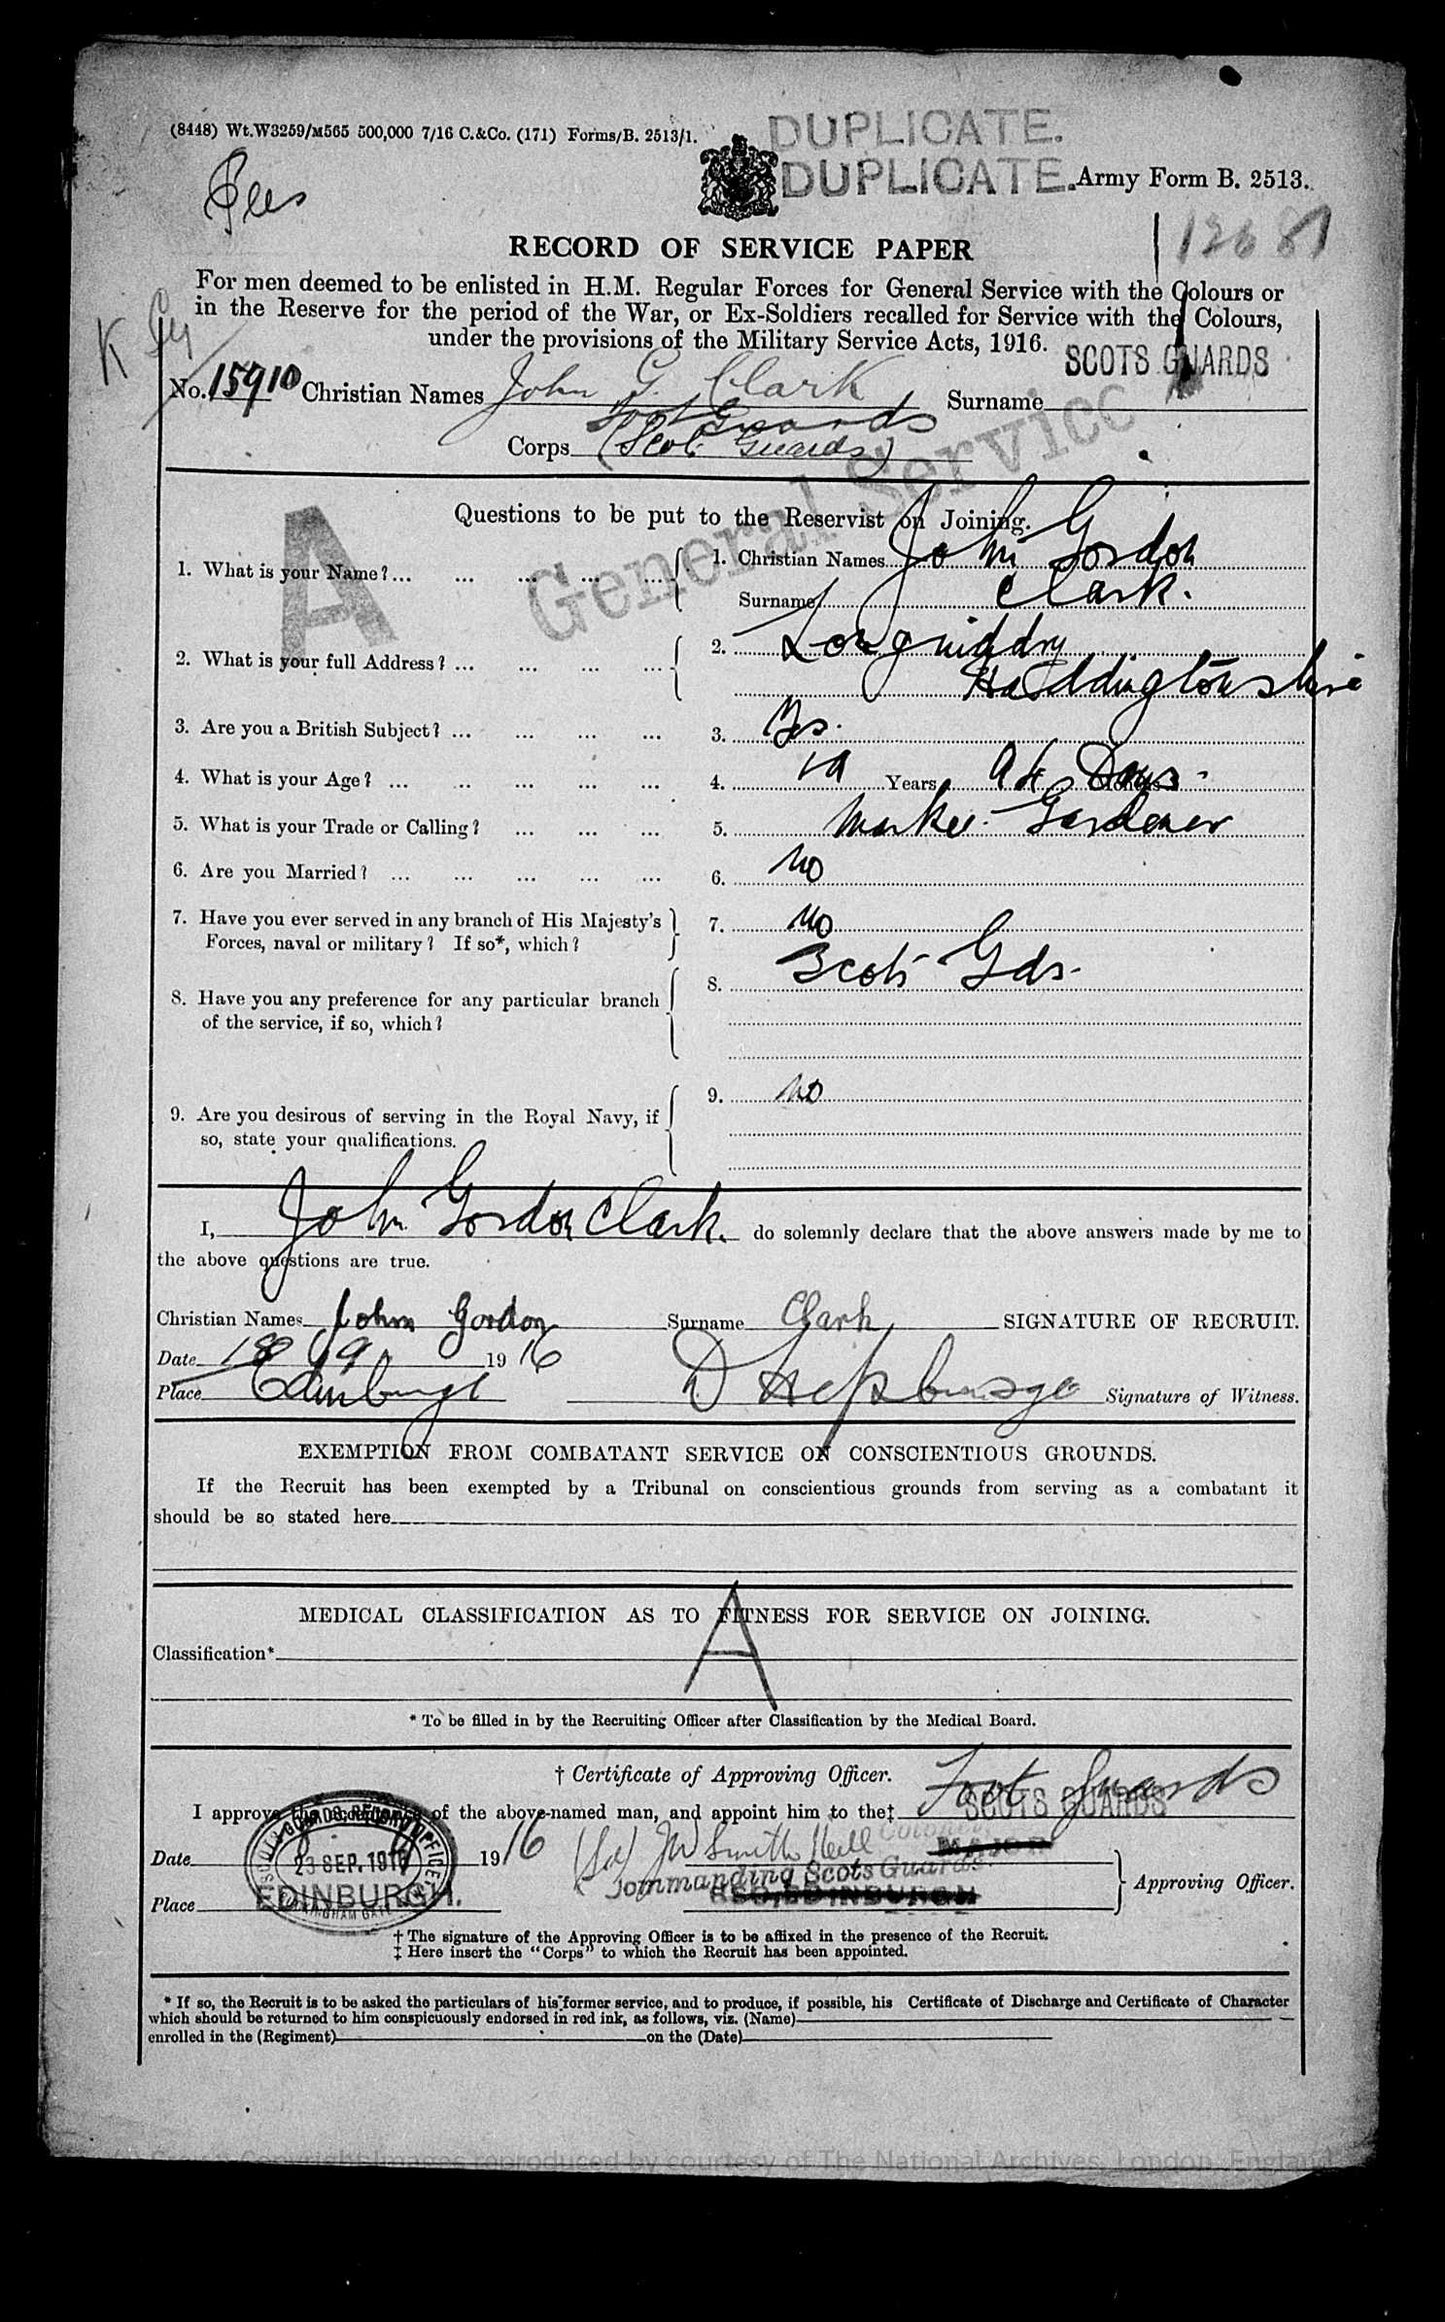 (8448) Wt.W3259/M565 500,000 7/16 C.&Co. (171) Forms/B. 2513/1.
DUPLICATE.
DUPLICATE.
Army Form B. 2513.
RECORD OF SERVICE PAPER
For men deemed to be enlisted in H.M. Regular Forces for General Service with the Colours or
in the Reserve for the period of the War, or Ex-Soldiers recalled for Service with the Colours,
under the provisions of the Military Service Acts, 1916.
SCOTS GUARDS
No. 15910 Christian Names John G. Clark Surname
Foot Guards
Corps (Scots Guards)
A
General Service
Questions to be put to the Reservist on Joining.
1. What is your Name?... ... ... ... ... 1. Christian Names John Gordon
Surname Clark.
2. What is your full Address? ... ... ... ... 2. Longniddry
Haddingtonshire
3. Are you a British Subject? ... ... ... ... 3. Yes.
4. What is your Age? ... ... ... ... ... 4. Years Days
5. What is your Trade or Calling? ... ... ... 5. Market Gardener
6. Are you Married? ... ... ... ... ... 6. No
7. Have you ever served in any branch of His Majesty's 7. No
Forces, naval or military? If so*, which?
8. Scots Gds.
8. Have you any preference for any particular branch
of the service, if so, which?
9. No
9. Are you desirous of serving in the Royal Navy, if
so, state your qualifications.
I, John Gordon Clark. do solemnly declare that the above answers made by me to
the above questions are true.
Christian Names John Gordon Surname Clark SIGNATURE OF RECRUIT.
Date 9 1916
Place Edinburgh D Hepburn Signature of Witness.
EXEMPTION FROM COMBATANT SERVICE ON CONSCIENTIOUS GROUNDS.
If the Recruit has been exempted by a Tribunal on conscientious grounds from serving as a combatant it
should be so stated here
MEDICAL CLASSIFICATION AS TO FITNESS FOR SERVICE ON JOINING.
Classification* A
* To be filled in by the Recruiting Officer after Classification by the Medical Board.
† Certificate of Approving Officer.
Foot Guards
I approve the acceptance of the above-named man, and appoint him to the‡ SCOTS GUARDS
Date 23 SEP. 1916 1916 (Sd) JW Smith Neill Colonel MAJOR
Commanding Scots Guards.
Place EDINBURGH. Approving Officer.
† The signature of the Approving Officer is to be affixed in the presence of the Recruit.
‡ Here insert the "Corps" to which the Recruit has been appointed.
* If so, the Recruit is to be asked the particulars of his former service, and to produce, if possible, his Certificate of Discharge and Certificate of Character
which should be returned to him conspicuously endorsed in red ink, as follows, viz. (Name)
enrolled in the (Regiment) on the (Date)
Crown Copyright Images reproduced by courtesy of The National Archives, London, England